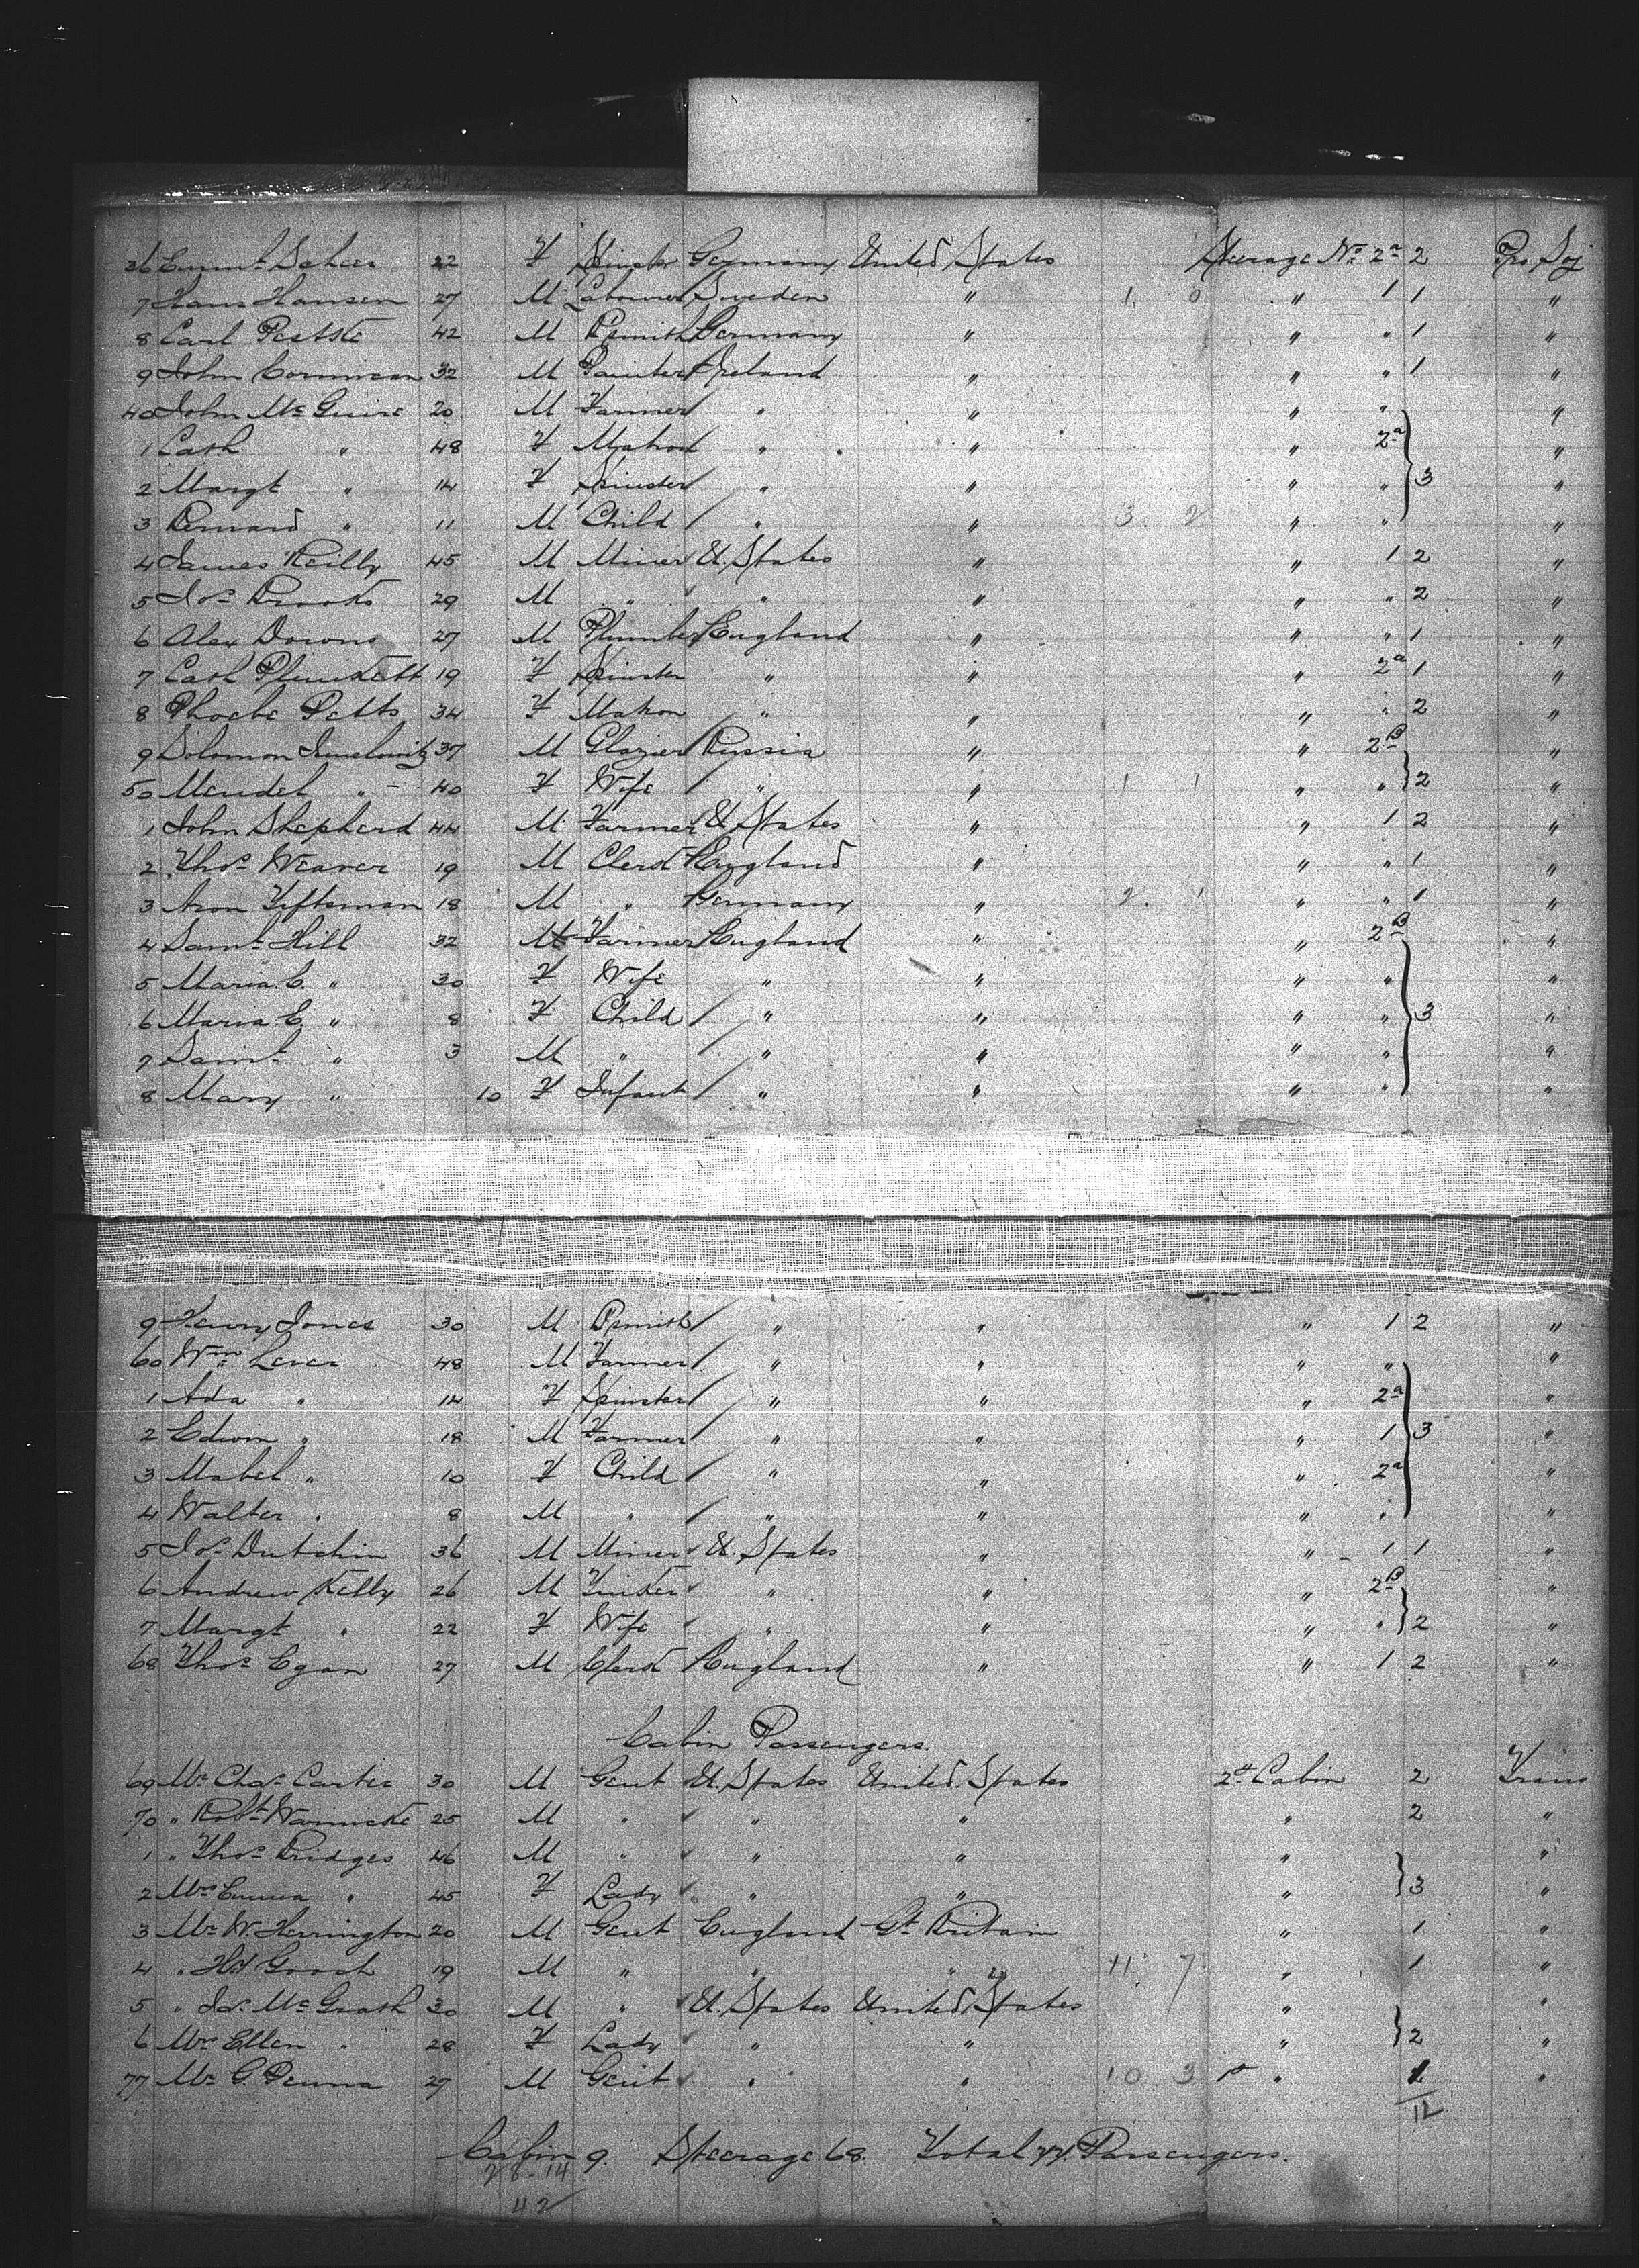 36 22 F Spinster Germany United States Steerage No. 2a 2 Pro Soj
7 Hans Hansen 27 M Labourer Sweden " 1 0 " 1 1 "
8 Carl 42 M Bsmith Germany " " " 1 "
9 John 32 M Painter Ireland " " " 1 "
40 John McGuire 20 M Farmer " " " " "
1 Cath " 48 F Matron " " " 2a "
2 Margt " 14 F Spinster " " " " 3 "
3 Bernard " 11 M Child " " 3 2 " " "
4 James Reilly 45 M Miner U. States " " 1 2 "
5 Jos Brooks 29 M " " " " " 2 "
6 Alex Downs 27 M Plumber England " " " 1 "
7 Cath Plunkett 19 F Spinster " " " 2a 1 "
8 Phoebe Potts 34 F Matron " " " " 2 "
9 Solomon 37 M Glazier Russia " " 2B "
50 Mendel " 40 F Wife " " 1 1 " " 2 "
1 John Shepherd 44 M Farmer U States " " 1 2 "
2 Thos Weaver 19 M Clerk England " " " 1 "
3 Aron 18 M " Germany " 2 1 " " 1 "
4 Saml Hill 32 M Farmer England " " 2B "
5 Maria C. " 30 F Wife " " " " "
6 Maria E " 8 F Child " " " " 3 "
7 Saml " 3 M " " " " " "
8 Mary " 10 F Infant " " " " "
9 Henry Jones 30 M Bsmith " " " 1 2 "
60 Wm Lever 48 M Farmer " " " " "
1 Ada " 14 F Spinster " " " 2a "
2 Edwin " 18 M Farmer " " " 1 3 "
3 Mabel " 10 F Child " " " 2a "
4 Walter " 8 M " " " " " "
5 Jos Dutchin 36 M Miner U. States " " 1 1 "
6 Andrew Kelly 26 M " " " 2B "
7 Margt " 22 F Wife " " " " 2 "
68 Thos Egan 27 M Clerk England " " 1 2 "
Cabin Passengers.
69 Mr Chas Carter 30 M Gent U. States United States 2d Cabin 2 Trans
70 " Robt 25 M " " " " 2 "
1 " Thos Bridges 46 M " " " " "
2 Mrs Emma " 45 F Lady " " " 3 "
3 Mr W. Herrington 20 M Gent England Gt Britain " 1 "
4 " Hy Gooch 19 M " " " 11 7 " 1 "
5 " Jas McGrath 30 M " U. States United States " "
6 Mrs Ellen " 28 F Lady " " " 2 "
77 Mr G. Penna 27 M Gent " " 10 3 " "
12
Cabin 9. Steerage 68. Total 77. Passengers.
28 - 14
42